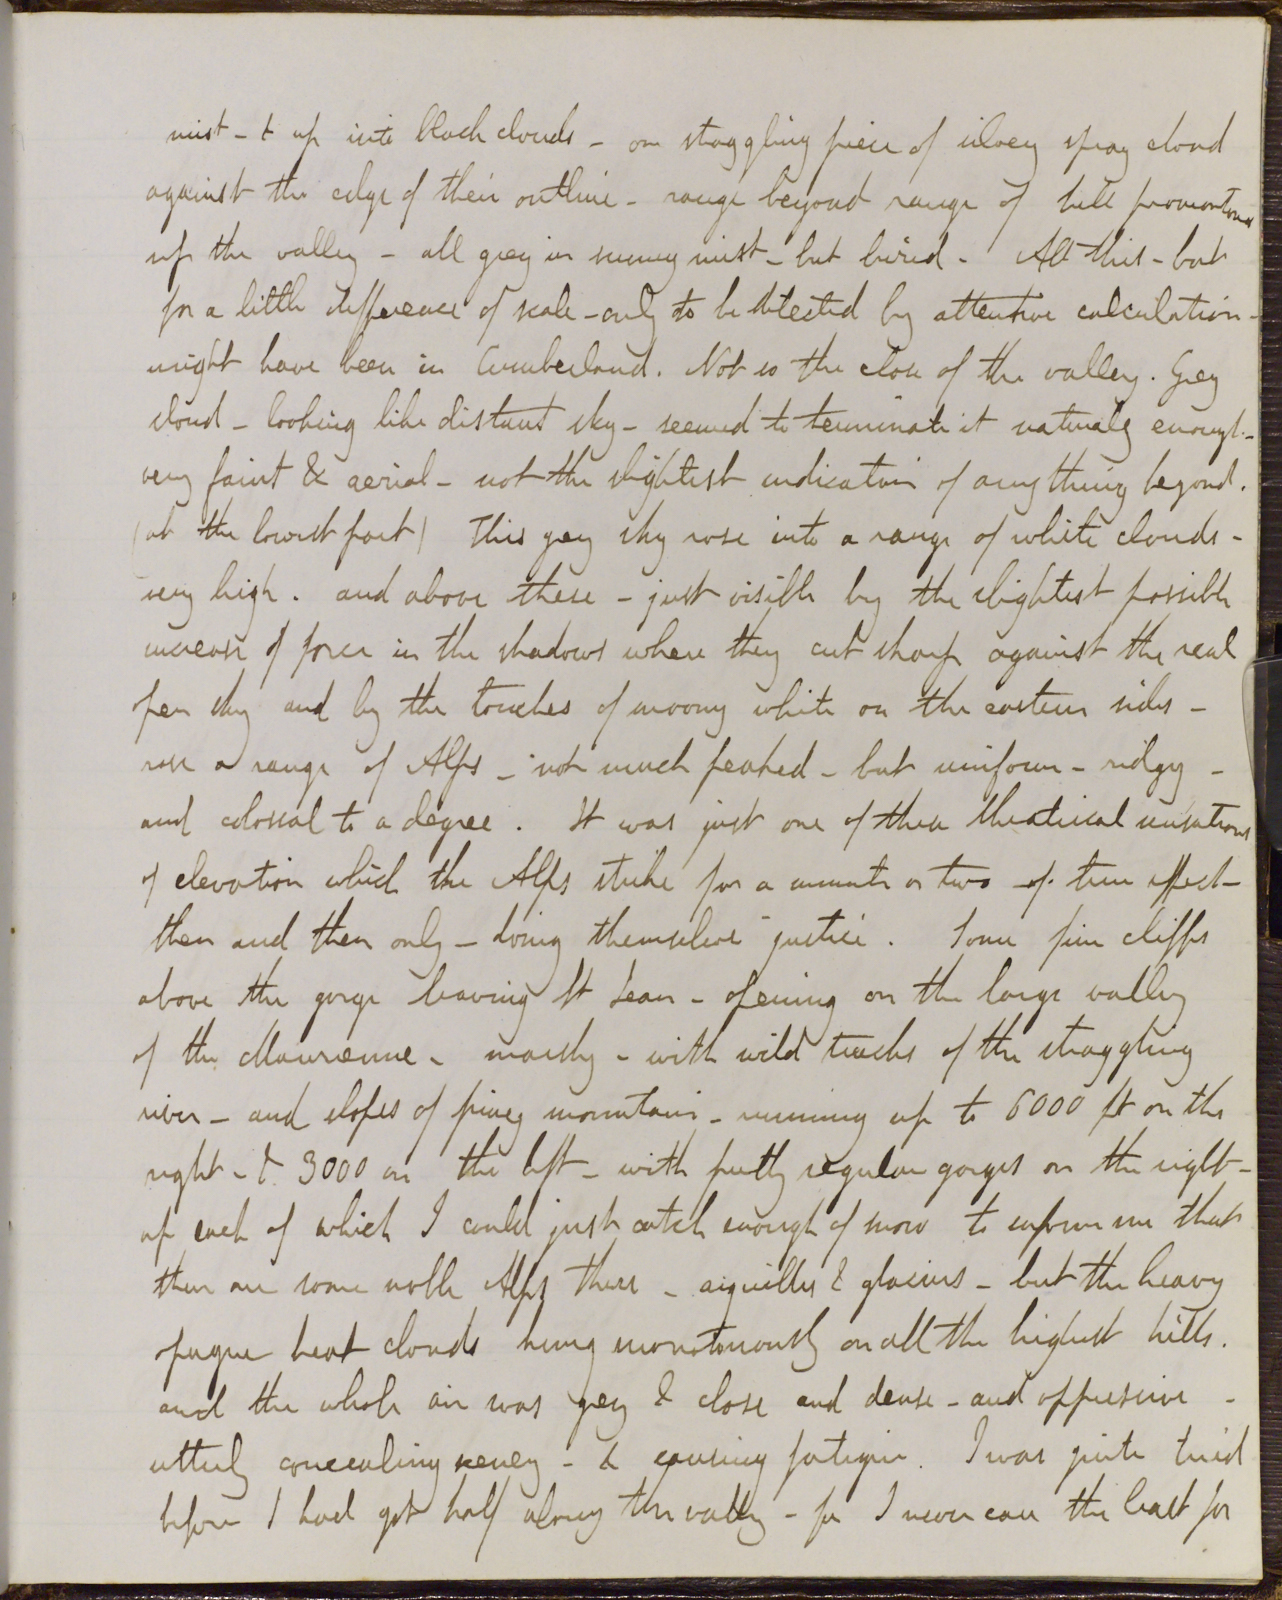 mist - & up into black clouds - one straggling piece of silvery spray cloud
against the edge of their outline - range beyond range of hill promontories
up the valley - all grey in sunny mist - but . All this - but
for a little difference of scale - only to be detected by attentive calculation -
might have been in Cumberland. Not so the close of the valley. Grey
cloud - looking like distant sky - seemed to terminate it naturally enough -
very faint & aerial - not the slightest indication of anything beyond.
(at the lowest part) This grey sky rose into a range of white clouds -
very high. and above these - just visible by the slightest possible
increase of force in the shadows where they cut sharp against the real
open sky and by the touches of moony white on the eastern sides -
rose a range of Alps - not much peaked - but uniform - ridgy -
and colossal to a degree. It was just one of those theatrical sensations
of elevation which the Alps strike for a minute or two - of true effect -
then and then only - doing themselves justice. Some fine cliffs
above the gorge leaving St Jean - opening on the large valley
of the Maurienne - marshy - with wild tracks of the straggling
river - and slopes of piney mountain - running up to 6000 ft on the
right - & 3000 on the left - with pretty regular gorges on the right -
up each of which I could just catch enough of snow to inform me that
there are some noble Alps there - aiguilles & glaciers - but the heavy
opaque heat clouds hung monotonously on all the highest hills.
and the whole air was grey & close and dense - and oppressive -
utterly concealing scenery - & causing fatigue. I was quite tired
before I had got half along the valley - for I never care the least for